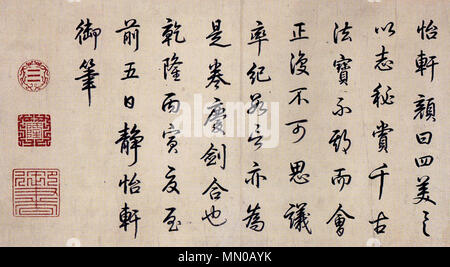 怡軒顏曰四美具
以志秘賞千古
法寶不期而會
正復不可思議
率紀數言亦為
是卷慶劍合也
乾隆丙寅夏至
前五日靜怡軒
御筆
alamy - MN0AYK